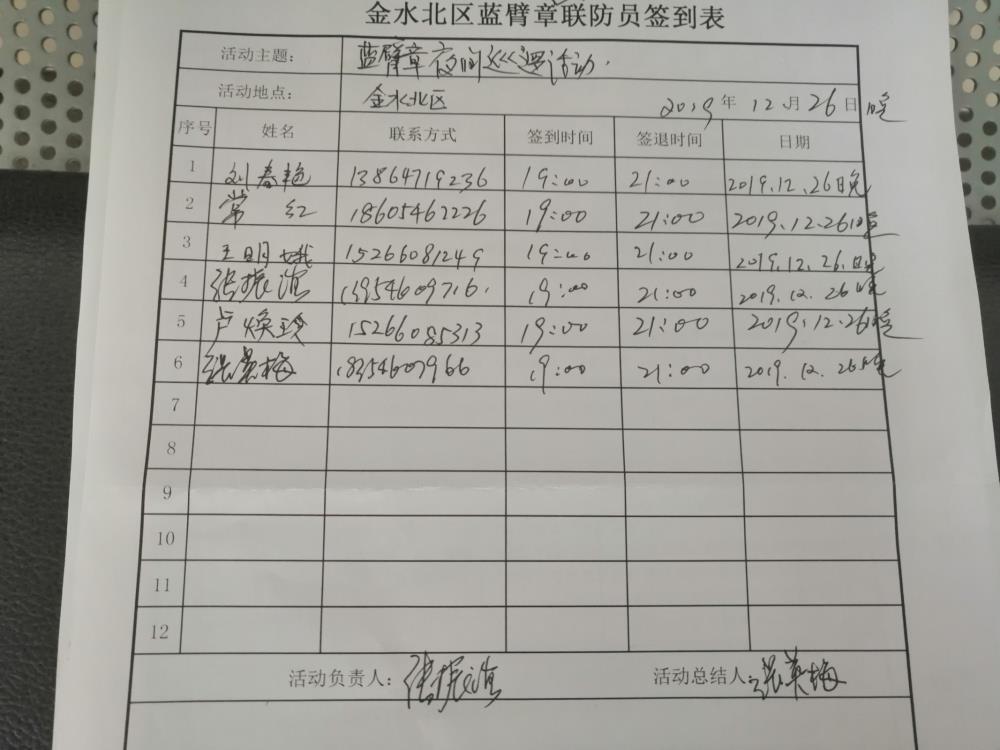 金水北区蓝臂章联防员签到表
活动主题： 蓝臂章夜间巡逻活动.
活动地点： 金水北区 2019年12月26日晚
序号 姓名 联系方式 签到时间 签退时间 日期
1 刘春艳 13864719236 19:00 21:00 2019.12.26日晚
2 常红 18605462226 19:00 21:00 2019.12.26日晚
3 王明娥 15266081249 19:00 21:00 2019.12.26.日晚
4 张振 13954609716. 19:00 21:00 2019.12.26日晚
5 卢焕玲 15266085313 19:00 21:00 2019.12.26日晚
6 张英梅 18354607966 19:00 21:00 2019.12.26日晚
7
8
9
10
11
12
活动负责人：张振 活动总结人：张英梅